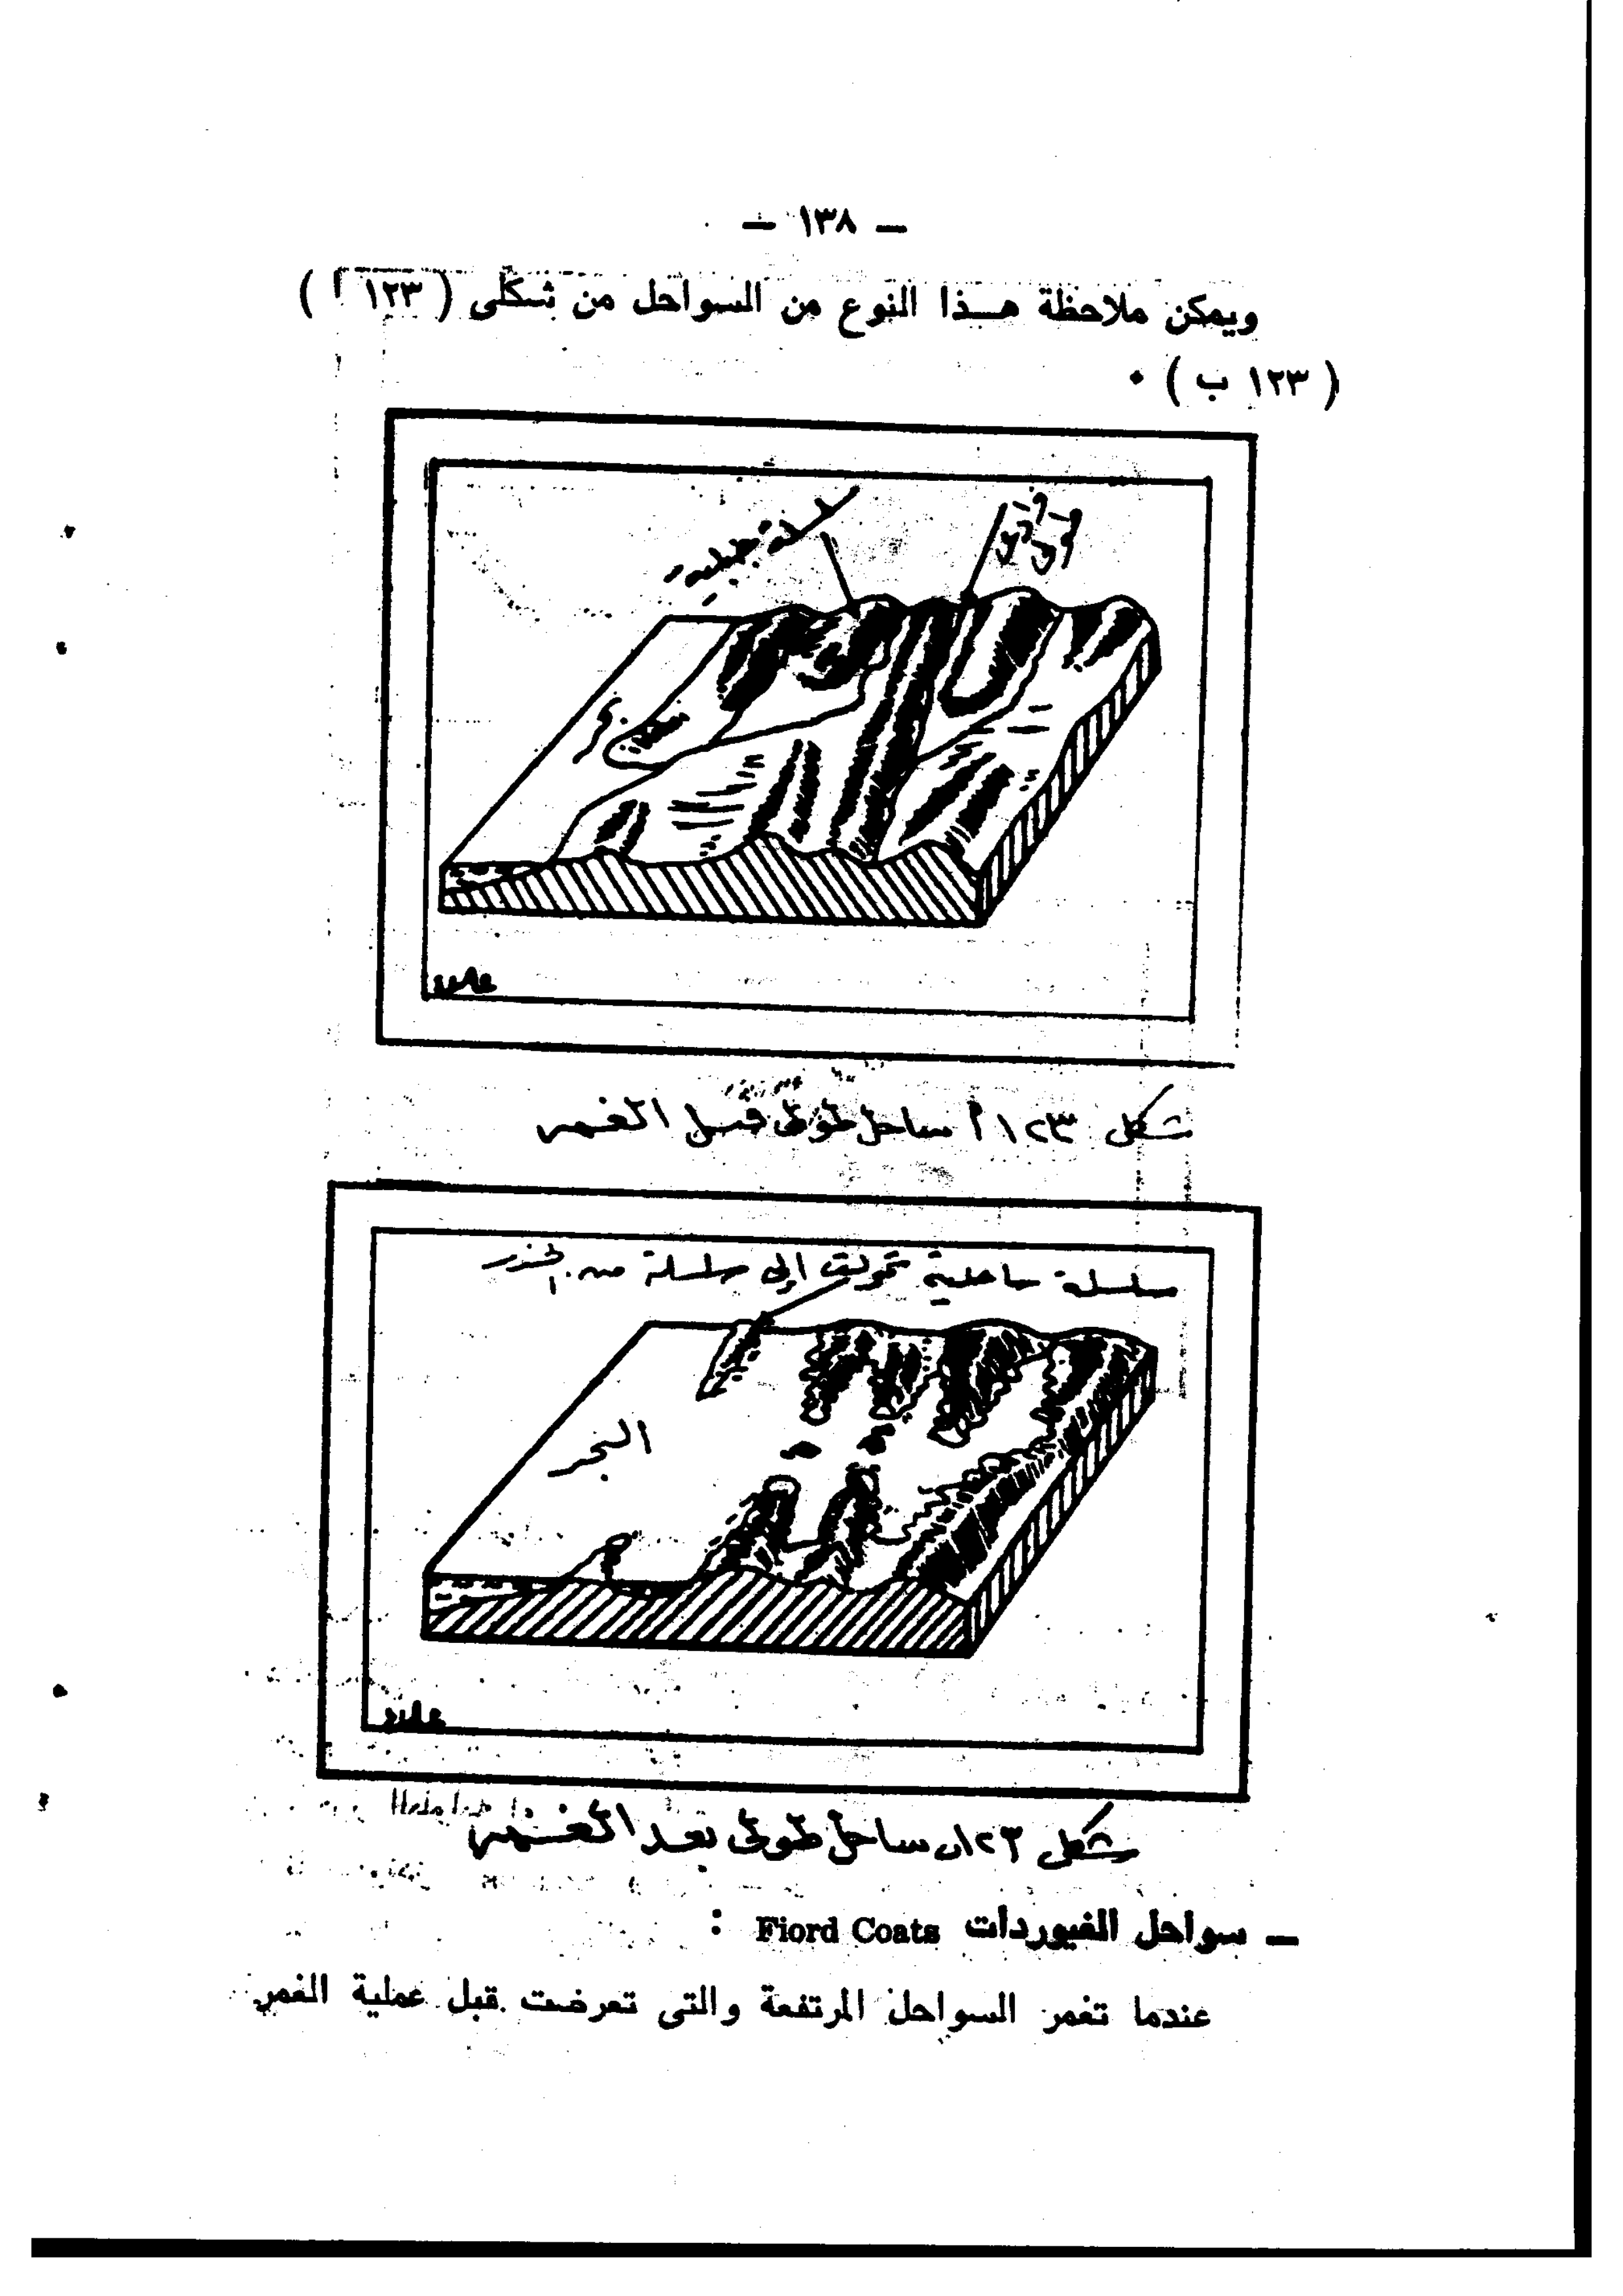 — ١٣٨ —
ويمكن ملاحظة هـــذا النوع من السواحل من شكلى ( ١٢٣ أ )
( ١٢٣ ب ) ٠
سلسلة جبلية
بحر
شكل ١٢٣ أ ساحل طولى قبل الغمر
سلسلة ساحلية تحولت إلى سلسلة من الجزر
البحر
شكل ١٢٣ب ساحل طولى بعد الغمر
— سواحل الفيوردات Fiord Coats :
عندما تغمر السواحل المرتفعة والتى تعرضت قبل عملية الغمر